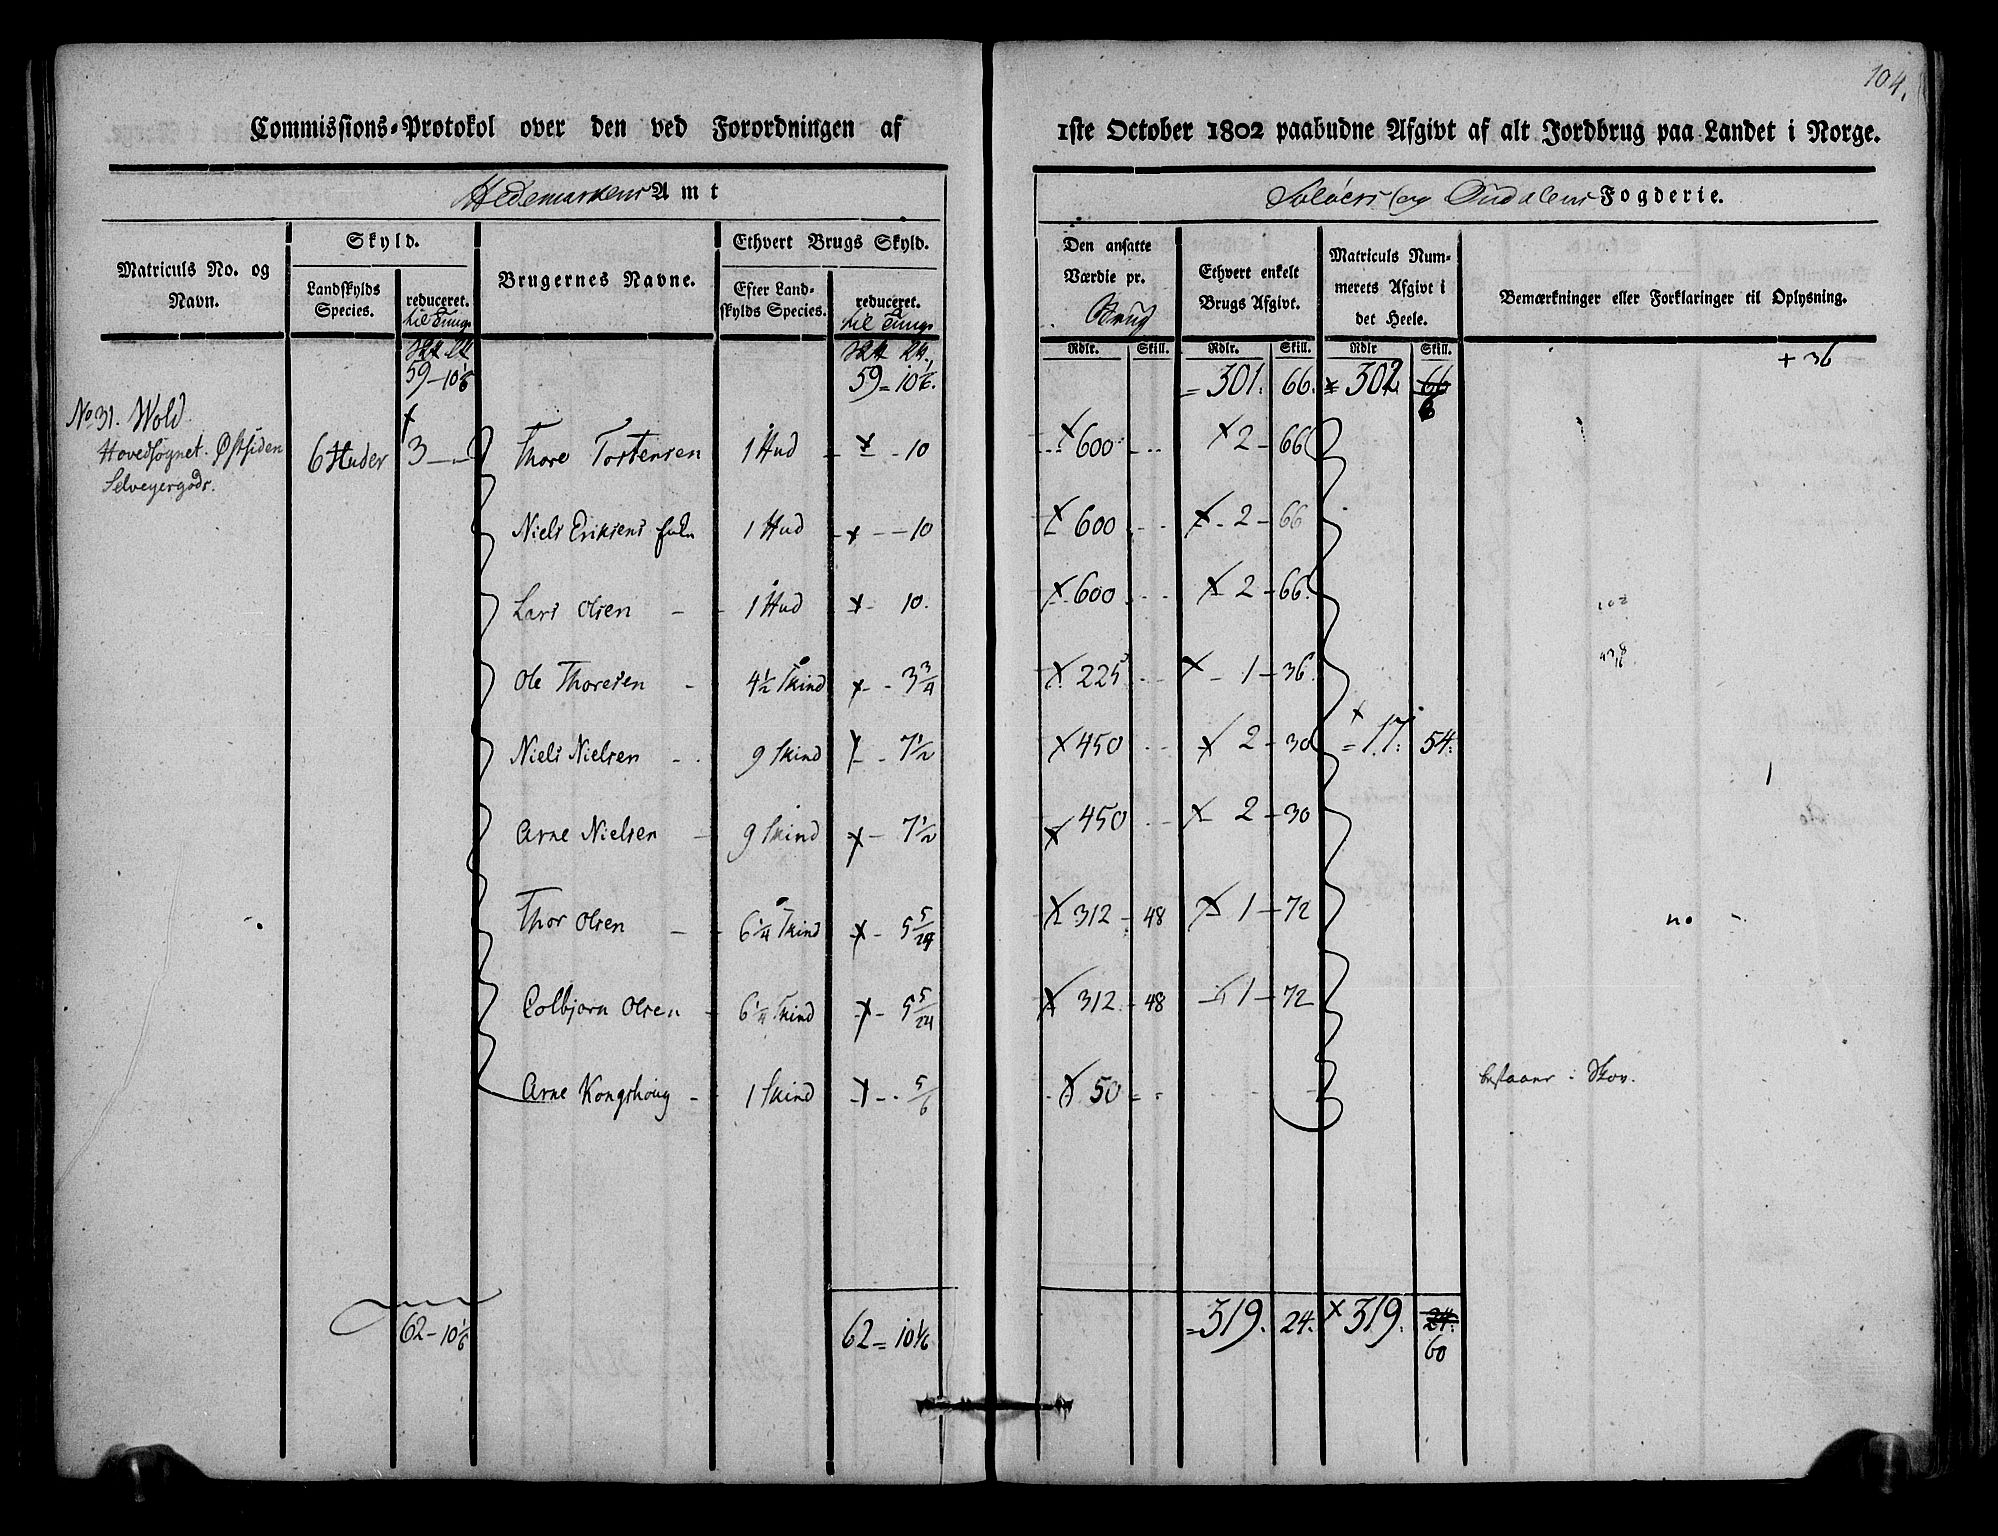 104.
Commissions-Protokol over den ved Forordningen af 1ste October 1802 paabudne Afgivt af alt Jordbrug paa Landet i Norge.
Hedemarkens Amt
Soløers og Oudalens Fogderie.
Matriculs No. og Navn.
Skyld.
Landskylds Species.
reduceret. til Tunge
Brugernes Navne.
Ethvert Brugs Skyld.
Efter Landskylds Species.
reduceret. til Tunge
Den ansatte Værdie pr. Brug
Ethvert enkelt Brugs Afgivt.
Matriculs Nummerets Afgivt i det Heele.
Bemærkninger eller Forklaringer til Oplysning.
Rdlr. Skill. Rdlr. Skill. Rdlr Skill.
59-10 1/6 59=10 1/6. =301. 66. 302 66 6 +36
No 31. Wold
Hovedsognet. Østsiden
Selveyergods.
6 Huder 3 - - Thore Tostensen 1 Hud - 10 600 2-66
Niels Eriksens 1 Hud - 10 600 2-66
Lars Olsen 1 Hud - 10. 600 2-66.
Ole Thoresen 4 1/2 Skind - 3 3/4 225 1-36.
Niels Nielsen 9 Skind - 7 1/2 450 2-30 =17. 54.
Arne Nielsen 9 Skind - 7 1/2 450 2-30
Thor Olsen 6 1/4 Skind - 5 5/24 312-48 1-72
Colbjørn Olsen 6 1/4 Skind - 5 5/24 312-48 1-72
Arne Kongshoug 1 Skind - 5/6 50 bestaaer i Skov.
62-10 1/6 62=10 1/6 =319. 24. 319. 24. 60